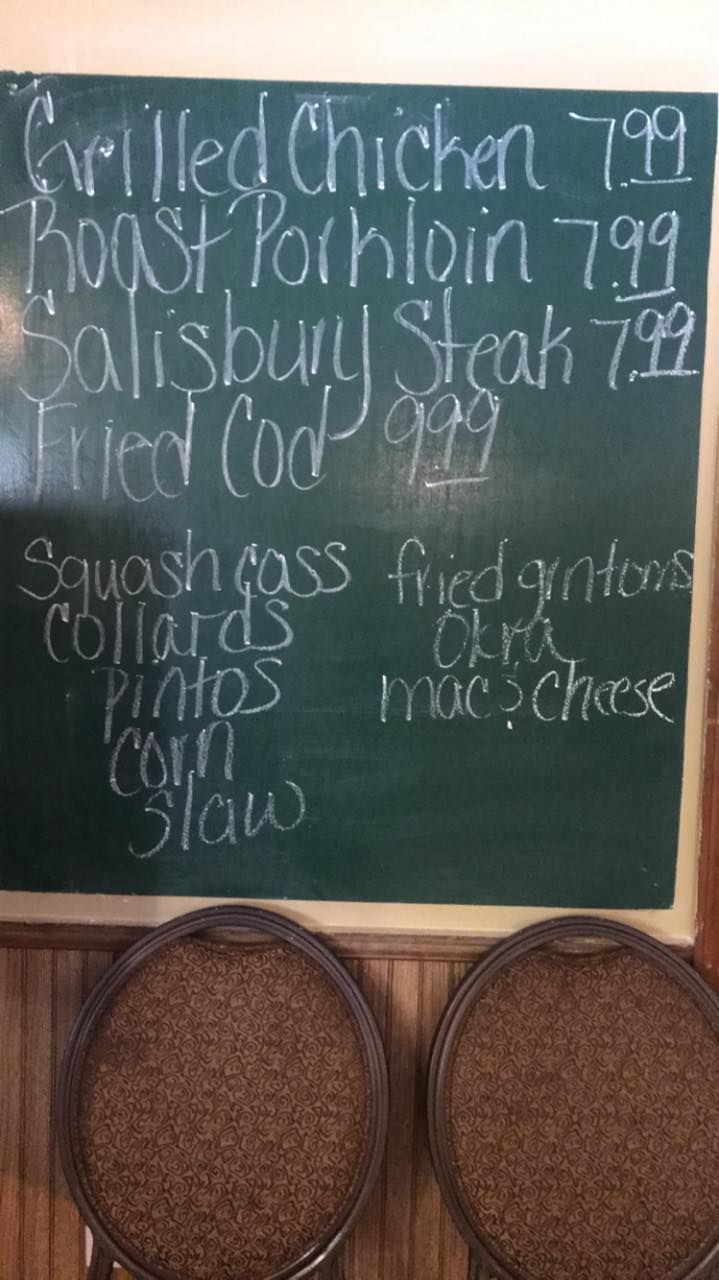 Grilled Chicken 7.99
Roast Porkloin 7.99
Salisbury Steak 7.99
Fried Cod 999
Squash cass
collards
pintos
corn
slaw
fried grntoms
okra
mac & cheese